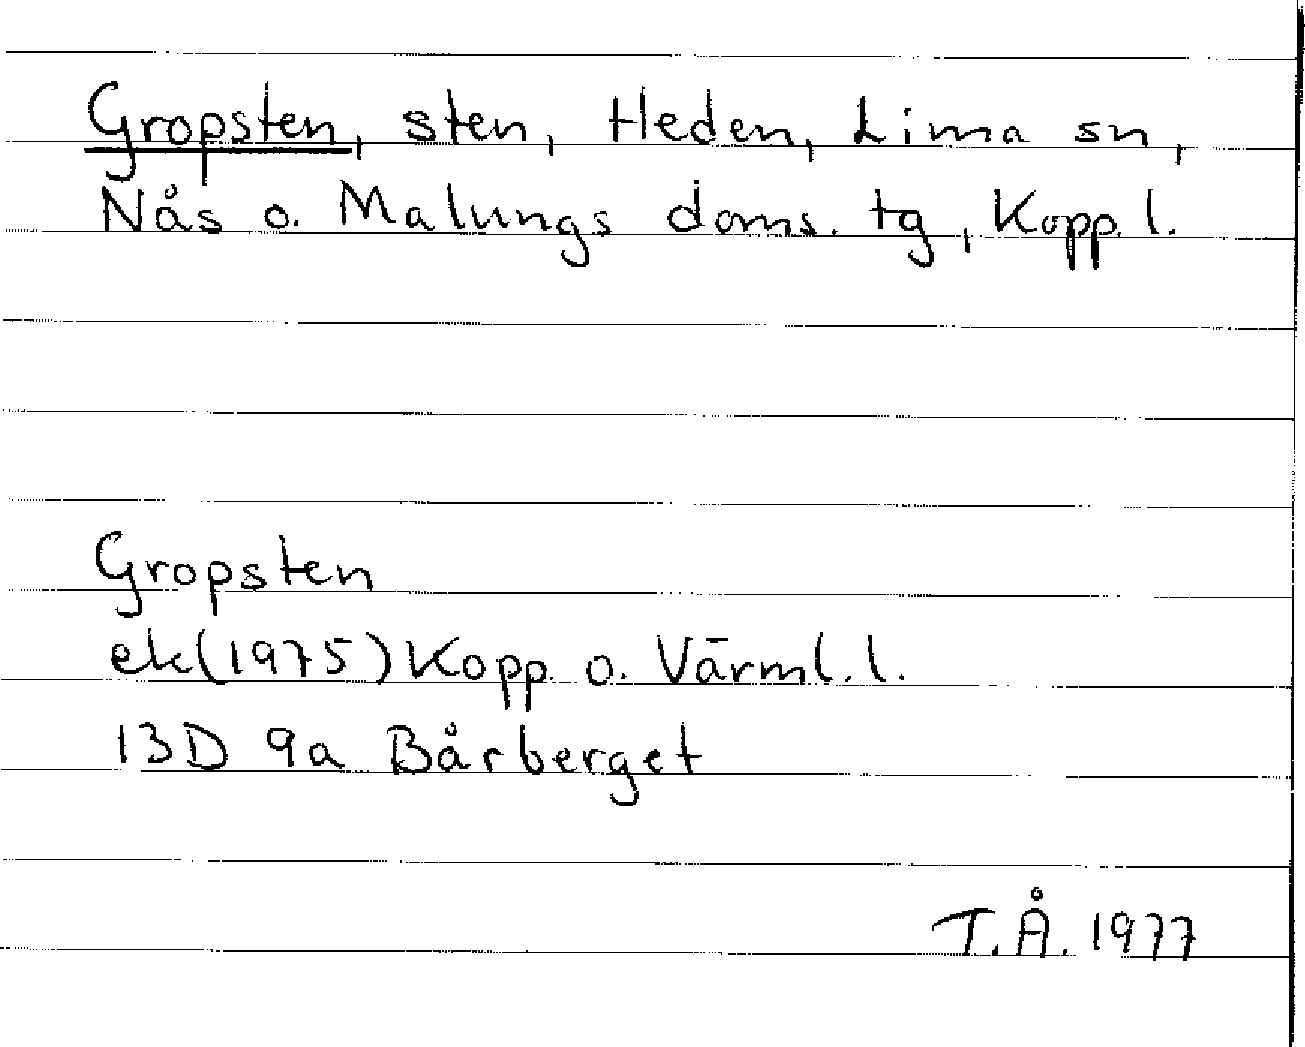 Gropsten, sten, Heden, Lima sn,
Nås o. Malungs doms. tg, Kopp. l.
Gropsten
ek (1975) Kopp. o. Värml. l.
13D 9a Bårberget
T.Å. 1977